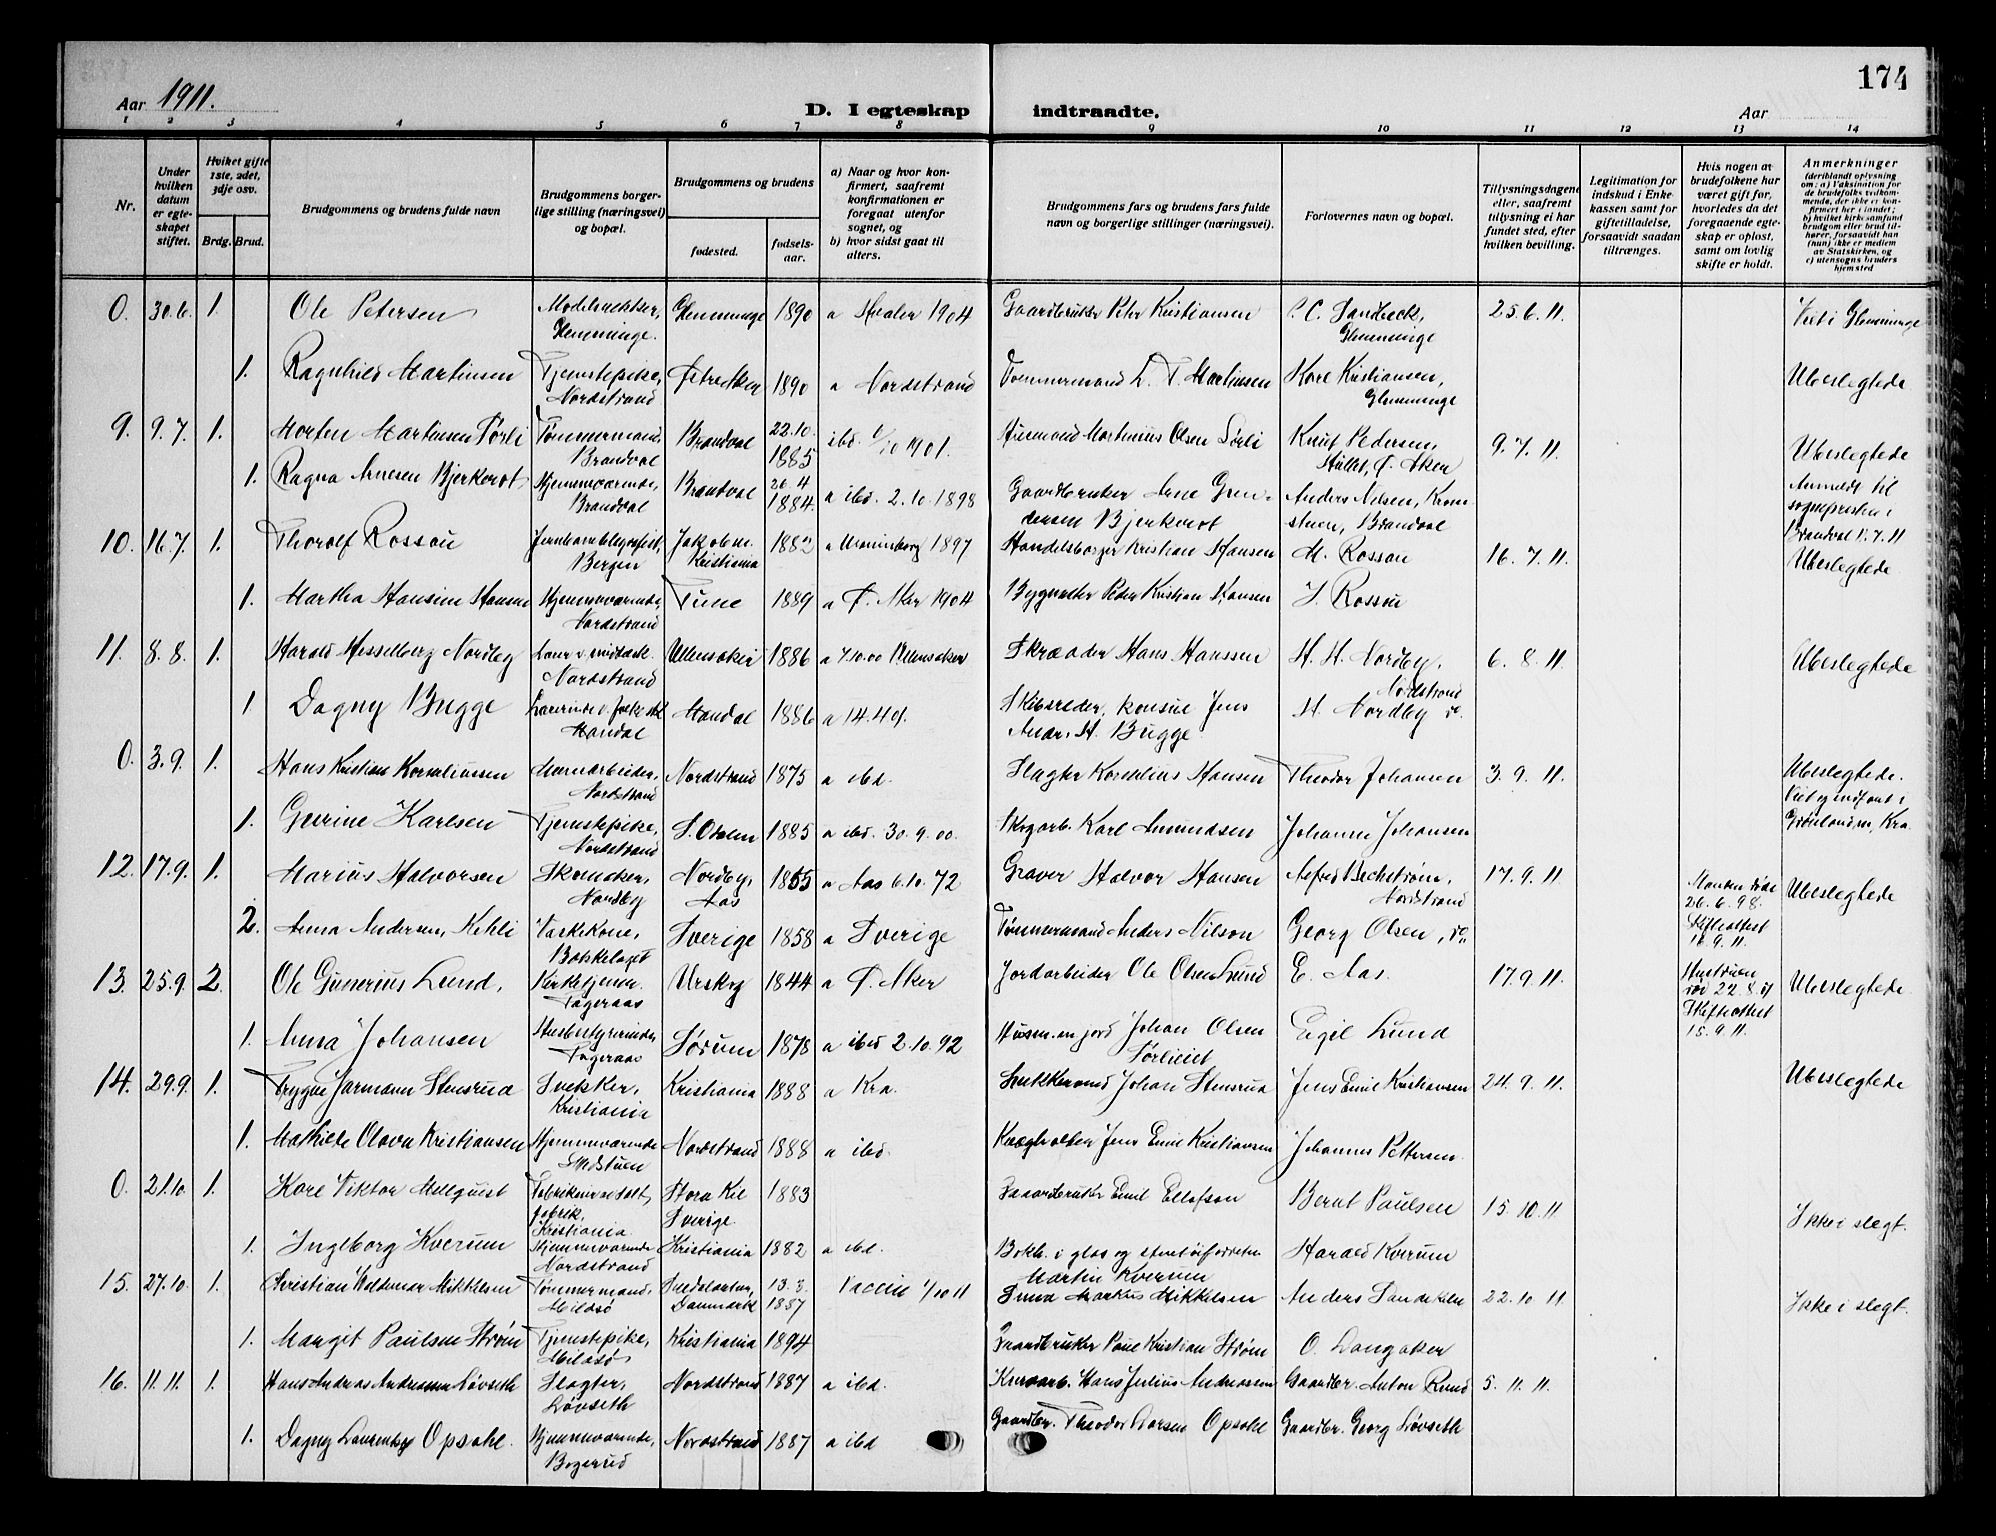 174
Aar 1911.
D. I egteskap indtraadte.
Aar
1 2 3 4 5 6 7 8 9 10 11 12 13 14
Nr.
Under hvilken datum er egteskapet stiftet.
Hvilket gifte 1ste, 2det, 3dje osv.
Brdg. Brud.
Brudgommens og brudens fulde navn
Brudgommens borgerlige stilling (næringsvei) og bopæl.
Brudgommens og brudens
fødested. fødselsaar.
a) Naar og hvor konfirmert, saafremt konfirmationen er foregaat utenfor sognet, og
b) hvor sidst gaat til alters.
Brudgommens fars og brudens fars fulde navn og borgerlige stillinger (næringsvei).
Forlovernes navn og bopæl.
Tillysningsdagene eller, saafremt tillysning ei har fundet sted, efter hvilken bevilling.
Legitimation for indskud i Enkekassen samt for giftetilladelse, forsaavidt saadan tiltrænges.
Hvis nogen av brudefolkene har været gift før, hvorledes da det foregaaende egteskap er opløst, samt om lovlig skifte er holdt.
Anmerkninger (deriblandt oplysning om: a) Vaksination for de brudefolks vedkommende, der ikke er konfirmert her i landet; b) hvilket kirkesamfund brudgom eller brud tilhører, forsaavidt han (hun) ikke er medlem av Statskirken, og c) utensogns bruders hjemsted
0. 30.6. 1. Ole Petersen Glemminge. Glemminge 1890 a 1904 Gaardbruker Peter Kristiansen Sandbeck, Glemminge 25.6.11. Viet i Glemminge
1. Ragnhild Martinsen Tjenstepike, Nordstrand 1890 a Nordstrand Tømmermand L. T. Martinsen Karl Kristiansen, Glemminge Ubeslegtede
9. 9.7. 1. Morten Martinsen Sørli Tømmermand, Brandval Brandval 22.10. 1885 ibd. 1/10 1901. Martinius Olsen Sørli Knut Pedersen, Ø. Aker 9.7.11. Ubeslegtede
1. Ragna Arnesen Bjerkerot Hjemmeværende, Brandval Brandval 26.4 1884. a ibd. 2.10.1898 Gaardbruker Arne Gundersen Bjerkerot Anders Nilsen, Brandval Anmeldt til sognepresten i Brandval 17.7.11
10. 16.7. 1. Thorolf Rossou Bergen Jakob m. Kristiania 1882 a 1897 Handelsborger Kristian Hansen M. Rossou 16.7.11. Ubeslegtede
1. Martha Hansine Hansen Hjemmeværende, Nordstrand Tune 1889 a Ø. Aker 1904 Peter Kristian Hansen J. Rossou
11. 8.8. 1. Harald Hesselberg Nordby Nordstrand Ullensaker 1886 a 7.10.00 Ullensaker Skræder Hans Hanssen H. H. Nordby, Nordstrand 6.8.11. Ubeslegtede
1 Dagny Bugge Mandal Mandal 1886 a 14.4.01. Skibsreder, konsul Jens Andr. H. Bugge H. Nordby do.
0. 3.9. 1. Hans Kristian Korneliussen Nordstrand Nordstrand 1875 a ibd. Slagter Kornelius Hansen Theodor Johansen 3.9.11. Ubeslegtede. Viet i Grønlandsm, Kra.
1. Gurine Karlsen Tjenstepike, Nordstrand S. Odalen 1885 a ibd. 30.9.00. Skogarb. Karl Amundsen Johannes Johansen
12. 17.9. 1. Marius Halvorsen Skomaker, Nordby Nordby, Aas 1855 a Aas 6.10.72 Graver Halvor Hansen Alfred Bechstrøm, Nordstrand 17.9.11 Manden død 26.6.98. Skifteattest 16.9.11. Ubeslegtede
2. Anna Andersen, Kehli Vaskekone, Botskelaget Sverige 1858 a Sverige Tømmermand Anders Nilson Georg Olsen, do.
13. 25.9. 2. Ole Gunerius Lund, Kirketjener. Fageraas Urskog 1844 a Ø. Aker Jordarbeider Ole Olsen Lund E. Aas. 17.9.11. Hustruen død 22.8.01 Skifteattest 15.9.11. Ubeslegtede
1. Anna Johansen Husbestyrerinde, Fageraas Sørum 1878 a ibd 2.10.92 Husm. m. jord Johan Olsen Sørlieiet Eigil Lund
14. 29.9. 1. Trygve Jarmann Stensrud Snekker, Kristiania Kristiania 1888 a Kra. Johan Stensrud Jens Emil Kristiansen 24.9.11. Ubeslegtede
1. Mathilde Olava Kristiansen Hjemmeværende Nordstrand 1888 a ibd. Jens Emil Kristiansen Johannes Pettersen
0. 21.10. 1. Karl Viktor Mellquist Kristiania Stora Kil Sverige 1883 Gaardbruker Emil Ellofson Bernt Paulsen 15.10.11 Ikke i slegt.
1. Ingeborg Kverum Hjemmeværende Nordstrand Kristiania 1882 a ibd. Bokh. i glas og Martin Kverum Harald Kverum
15. 27.10. 1. Kristian Valdemar Mikkelsen Tømmermand, Danmark 13.3. 1887 Vaccin 1/10 11 Smed Markus Mikkelsen Anders 22.10.11. Ikke i slegt.
1. Margit Paulsen Strøm Tjenstepike, Kristiania 1894 Gaardbruker Paul Kristian Strøm O. Langaker
16. 11.11. 1. Hans Andreas Andreassen Løvseth Slagter, Løvseth Nordstrand 1887 a ibd. Hans Julius Andreassen Gaardbr. Anton Rud 5.11.11.
1. Dagny Opsahl. Hjemmeværende, Bogerud Nordstrand 1887 a ibd Gaardbr. Theodor Larsen Opsahl Gaardbr. Georg Løvseth